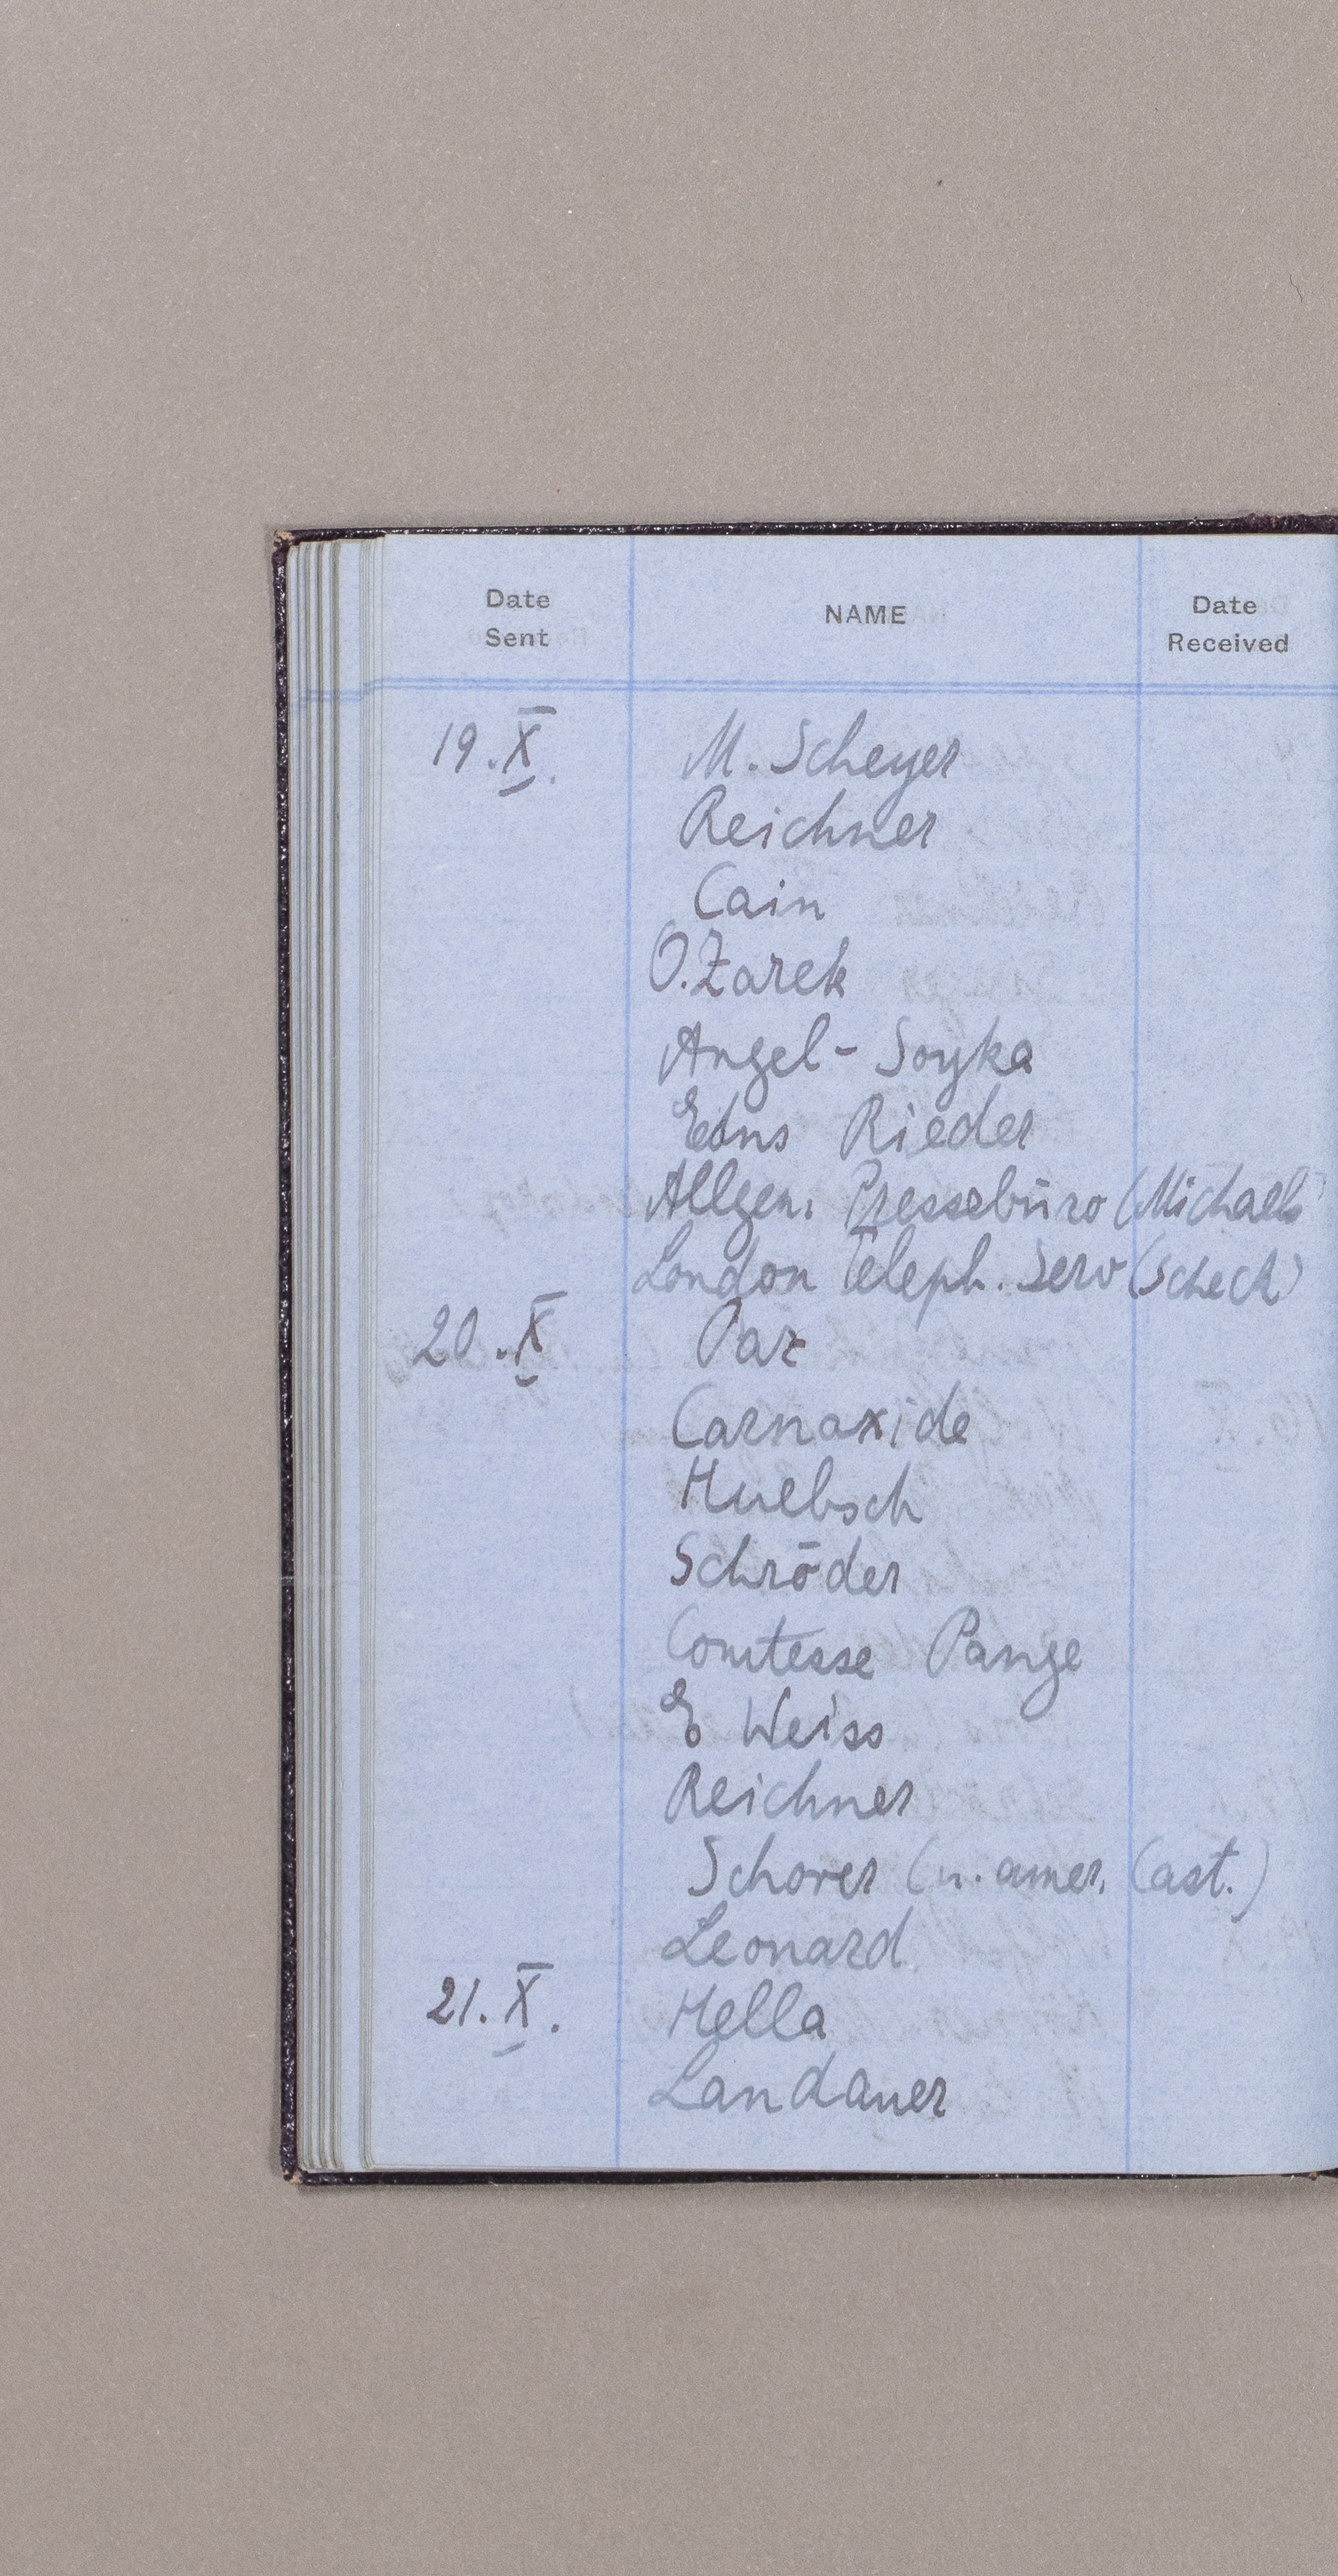 Date Sent NAME Date Received
19.X. M. Scheyer
Reichner
Cain
O. Zarek
Angel - Soyka
Edns Rieder
Allgem. Pressebüro (Michaelis)
London Teleph. Serv (Scheck)
20.X Paz
Carnaxide
Huebsch
Schröder
Comtesse Pange
E Weiss
Reichner
Schorer (u. amer. Cast.)
Leonard
21.X. Hella
Landauer